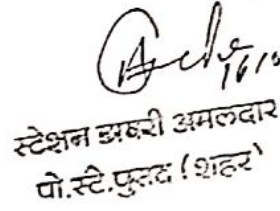 16/10
स्टेशन डायरी अमलदार
पो.स्टे.पुसद (शहर)